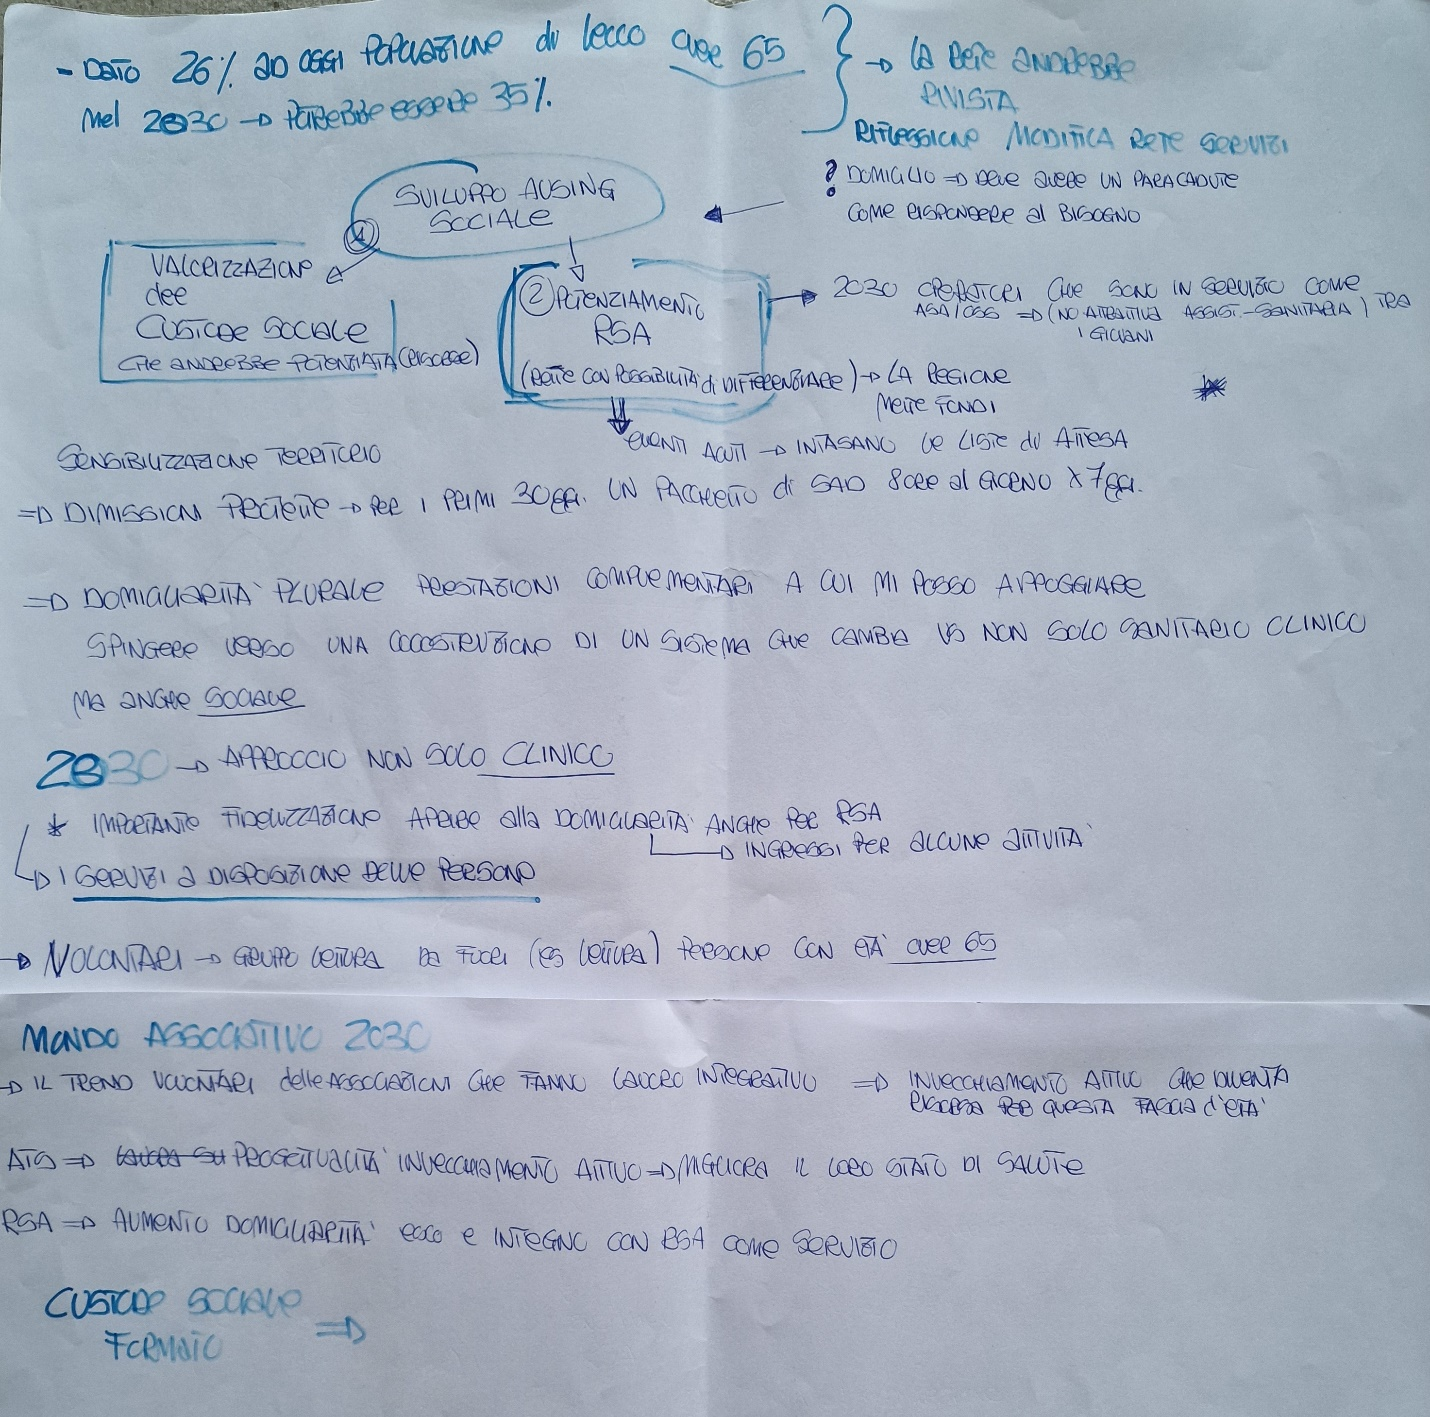 - DATO 26% AD OGGI POPOLAZIONE di LECCO OVER 65
Nel 2030 → POTREBBE ESSERE 35%.
→ LA RETE ANDREBBE
RIVISTA
RIFLESSIONE MODIFICA RETE SERVIZI
? DOMICILIO ⇒ DEVE AVERE UN PARACADUTE
COME RISPONDERE al BISOGNO
SVILUPPO AUSING
SOCIALE
1
VALORIZZAZIONE
del
CUSTODE SOCIALE
CHE ANDREBBE POTENZIATA (RISORSE)
② POTENZIAMENTO
RSA
(RETTE CON POSSIBILITÀ di DIFFERENZIARE) → LA REGIONE
METTE FONDI
→ 2030 OPERATORI CHE SONO IN SERVIZIO COME
ASA/OSS ⇒ (NO ATTRATTIVA ASSIST.-SANITARIA) TRA
I GIOVANI
*
EVENTI ACUTI → INTASANO LE LISTE di ATTESA
SENSIBILIZZAZIONE TERRITORIO
⇒ DIMISSIONI PROTETTE → PER I PRIMI 30gg. UN PACCHETTO di SAD 8 ORE al GIORNO X 7gg.
⇒ DOMICILIARITÀ PLURALE PRESTAZIONI COMPLEMENTARI A CUI MI POSSO APPOGGIARE
SPINGERE VERSO UNA COCOSTRUZIONE DI UN SISTEMA CHE CAMBIA VS NON SOLO SANITARIO CLINICO
MA ANCHE SOCIALE
2030 → APPROCCIO NON SOLO CLINICO
* IMPORTANTE FIDELIZZAZIONE APERE alla DOMICILIARITÀ ANCHE PER RSA
→ INGRESSI PER ALCUNE ATTIVITÀ
→ I SERVIZI A DISPOSIZIONE DELLE PERSONE
→ VOLONTARI → GRUPPO LETTURA DA FUORI (ES LETTURA) PERSONE CON ETÀ OVER 65
MONDO ASSOCIATIVO 2030
→ IL TREND VOLONTARI delle ASSOCIAZIONI CHE FANNO LAVORO INTEGRATIVO ⇒ INVECCHIAMENTO ATTIVO CHE DIVENTA
RISORSA PER QUESTA FASCIA d'ETÀ
ATS ⇒ LAVORA SU PROGETTUALITÀ INVECCHIAMENTO ATTIVO ⇒ MIGLIORA IL LORO STATO DI SALUTE
RSA ⇒ AUMENTO DOMICILIARITÀ ESCO E INTEGRO CON RSA COME SERVIZIO
CUSTODE SOCIALE
FORMATO ⇒